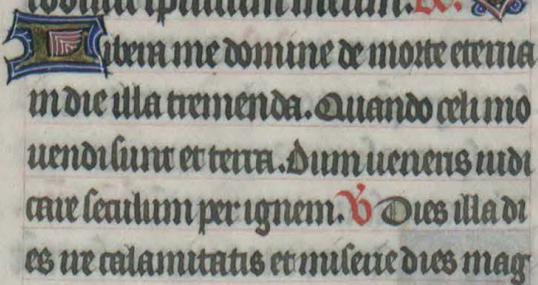 Libera me domine de morte eterna
in die illa tremenda. Quando celi mo
uendi sunt et terra. Dum ueneris iudi
care seculum per ignem. V Dies illa di
es ire calamitatis et miserie dies mag